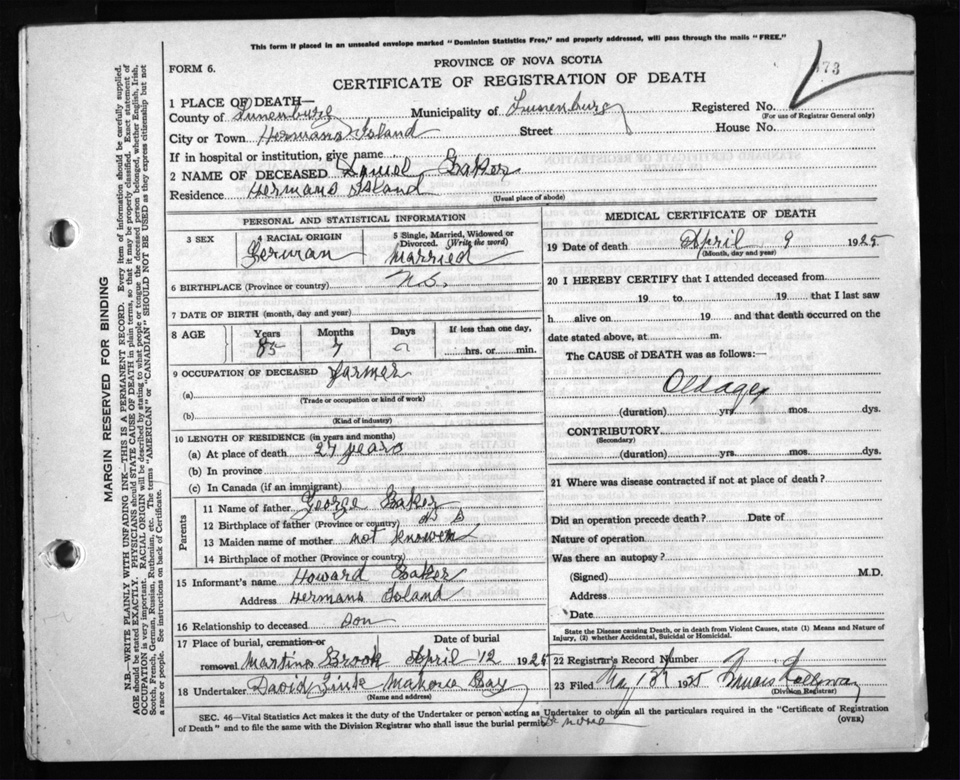 This form if placed in an unsealed envelope marked "Dominion Statistics Free," and properly addressed, will pass through the mails "FREE."
FORM 6.
PROVINCE OF NOVA SCOTIA
CERTIFICATE OF REGISTRATION OF DEATH
173
1 PLACE OF DEATH—
County of Lunenburg Municipality of Lunenburg Registered No.
(For use of Registrar General only)
City or Town Hermans Island Street House No.
If in hospital or institution, give name
2 NAME OF DECEASED Daniel Baker
Residence Hermans Island
(Usual place of abode)
PERSONAL AND STATISTICAL INFORMATION
3 SEX 4 RACIAL ORIGIN German 5 Single, Married, Widowed or Divorced. (Write the word) Married
6 BIRTHPLACE (Province or country) N.S.
7 DATE OF BIRTH (month, day and year)
8 AGE Years Months Days If less than one day,
85 7 hrs. or min.
9 OCCUPATION OF DECEASED Farmer
(a)
(Trade or occupation or kind of work)
(b)
(Kind of industry)
10 LENGTH OF RESIDENCE (in years and months)
(a) At place of death 27 years
(b) In province
(c) In Canada (if an immigrant)
Parents
11 Name of father George Baker
12 Birthplace of father (Province or country) N S
13 Maiden name of mother not knowen
14 Birthplace of mother (Province or country)
15 Informant's name Howard Baker
Address Hermans Island
16 Relationship to deceased Son
17 Place of burial, cremation or Date of burial
removal Martins Brook April 12 1925
18 Undertaker David Mahone Bay
(Name and address)
MEDICAL CERTIFICATE OF DEATH
19 Date of death April 9 1925
(Month, day and year)
20 I HEREBY CERTIFY that I attended deceased from
19 to 19 that I last saw
h alive on 19 and that death occurred on the
date stated above, at m.
The CAUSE of DEATH was as follows:—
Old age
(duration) yrs. mos. dys.
CONTRIBUTORY
(Secondary)
(duration) yrs. mos. dys.
21 Where was disease contracted if not at place of death?
Did an operation precede death? Date of
Nature of operation
Was there an autopsy?
(Signed) M.D.
Address
Date
State the Disease causing Death, or in death from Violent Causes, state (1) Means and Nature of
Injury, (2) whether Accidental, Suicidal or Homicidal.
22 Registrar's Record Number
23 Filed May 1925
(Division Registrar)
SEC. 46—Vital Statistics Act makes it the duty of the Undertaker or person acting as Undertaker to obtain all the particulars required in the "Certificate of Registration
of Death" and to file the same with the Division Registrar who shall issue the burial permit.
(OVER)
MARGIN RESERVED FOR BINDING
N.B.—WRITE PLAINLY WITH UNFADING INK—THIS IS A PERMANENT RECORD. Every item of information should be carefully supplied.
AGE should be stated EXACTLY. PHYSICIANS should STATE CAUSE OF DEATH in plain terms, so that it may be properly classified. Exact statement of
OCCUPATION is very important. RACIAL ORIGIN will be described by stating to what people or tongue the deceased person belonged, whether English, Irish,
Scotch, French, German, Russian, Ruthenian, etc. The terms "AMERICAN" or "CANADIAN" SHOULD NOT BE USED as they express citizenship but not
a race or people. See instructions on back of Certificate.